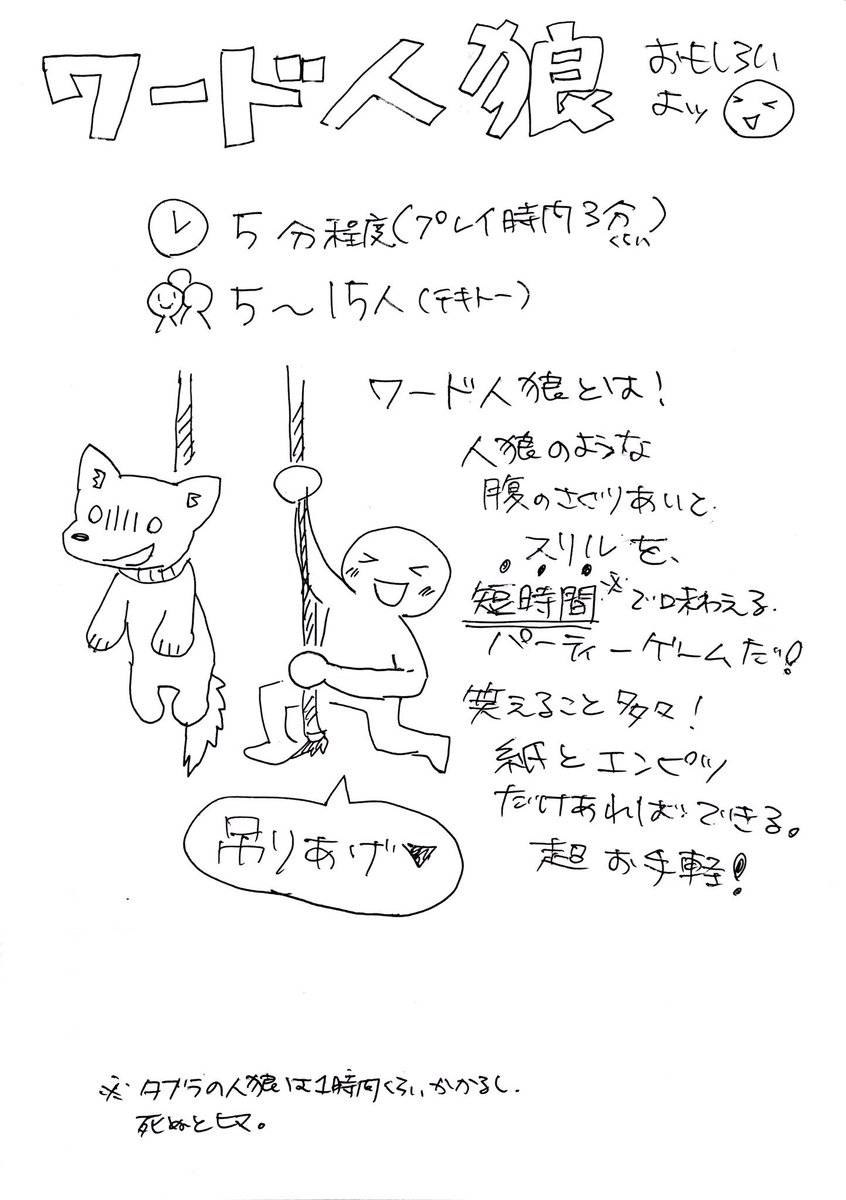 ワード人狼
おもしろい
よッ
5分程度(プレイ時間3分くらい)
5〜15人(テキトー)
ワード人狼とは!
人狼のような
腹のさぐりあいと
スリルを、
短時間※で味わえる
パーティーゲームだ!
笑えること多々!
紙とエンピツ
だけあればできる。
超お手軽!
吊りあげ♥
※タブラの人狼は1時間くらいかかるし、
死ぬとヒマ。